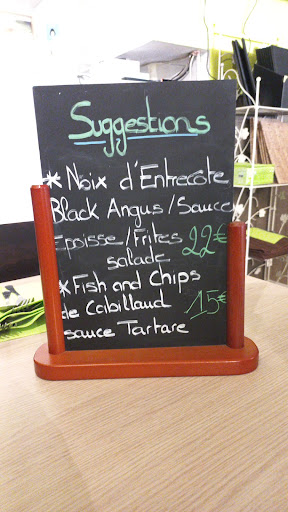 Suggestions
* Noix d'Entrecôte
Black Angus / Sauce
Epoisse / Frites 22€
salade
* Fish and Chips
de Cabillaud 15€
sauce Tartare